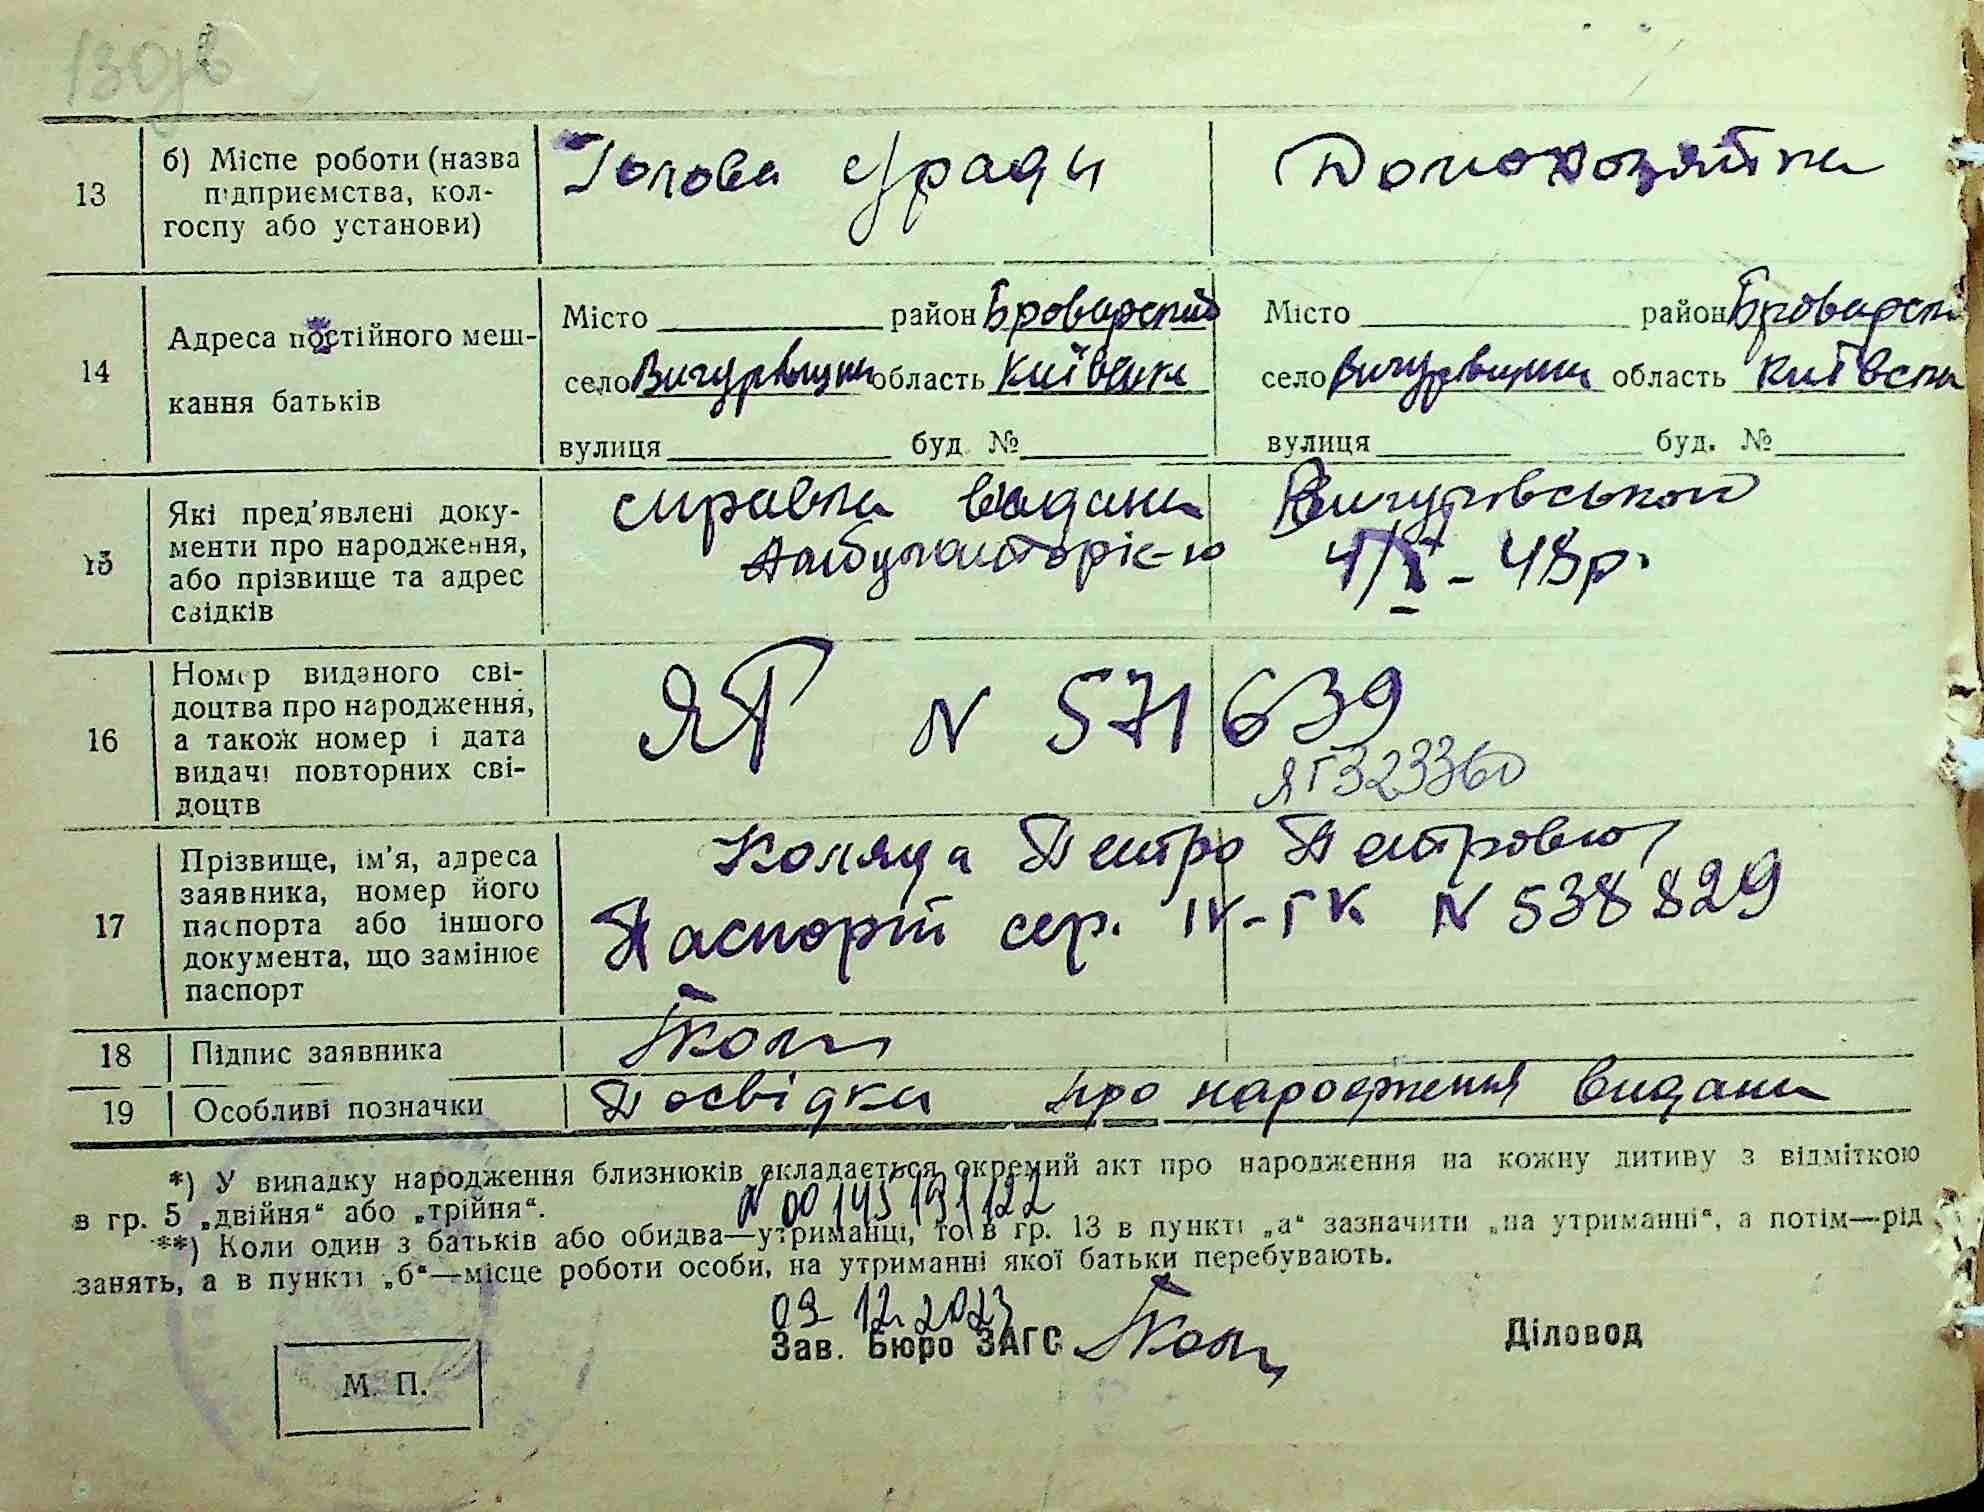 13
б) Місце роботи (назва
підприємства, кол-
госпу або установи)
Голова с/ради
Домохозяйка
14
Адреса постійного меш-
кання батьків
Місто район Броварский
село Вигурівщина область Київська
вулиця буд. №
Місто район Броварский
село Вигурівщина область Київська
вулиця буд. №
15
Які пред'явлені доку-
менти про народження,
або прізвище та адрес
свідків
справка видана Вигурівською
Амбулаторіє-ю 4/X - 48р.
16
Номер виданого сві-
доцтва про народження,
а також номер і дата
видачі повторних сві-
доцтв
ЯТ N 571639
ЯГ 323360
17
Прізвище, ім'я, адреса
заявника, номер його
паспорта або іншого
документа, що замінює
паспорт
Коляда Петро Петрович
Паспорт сер. IV-ГК N 538829
18
Підпис заявника
19
Особливі позначки
Досвідка про народження видана
*) У випадку народження близнюків складається окремий акт про народження на кожну дитину з відміткою
в гр. 5 „двійня“ або „трійня“.
N 00145191122
**) Коли один з батьків або обидва—утриманці, то в гр. 13 в пункті „а“ зазначити „на утриманні“, а потім—рід
занять, а в пункті „б“—місце роботи особи, на утриманні якої батьки перебувають.
09 12. 2023
Зав. Бюро ЗАГС
Діловод
М. П.